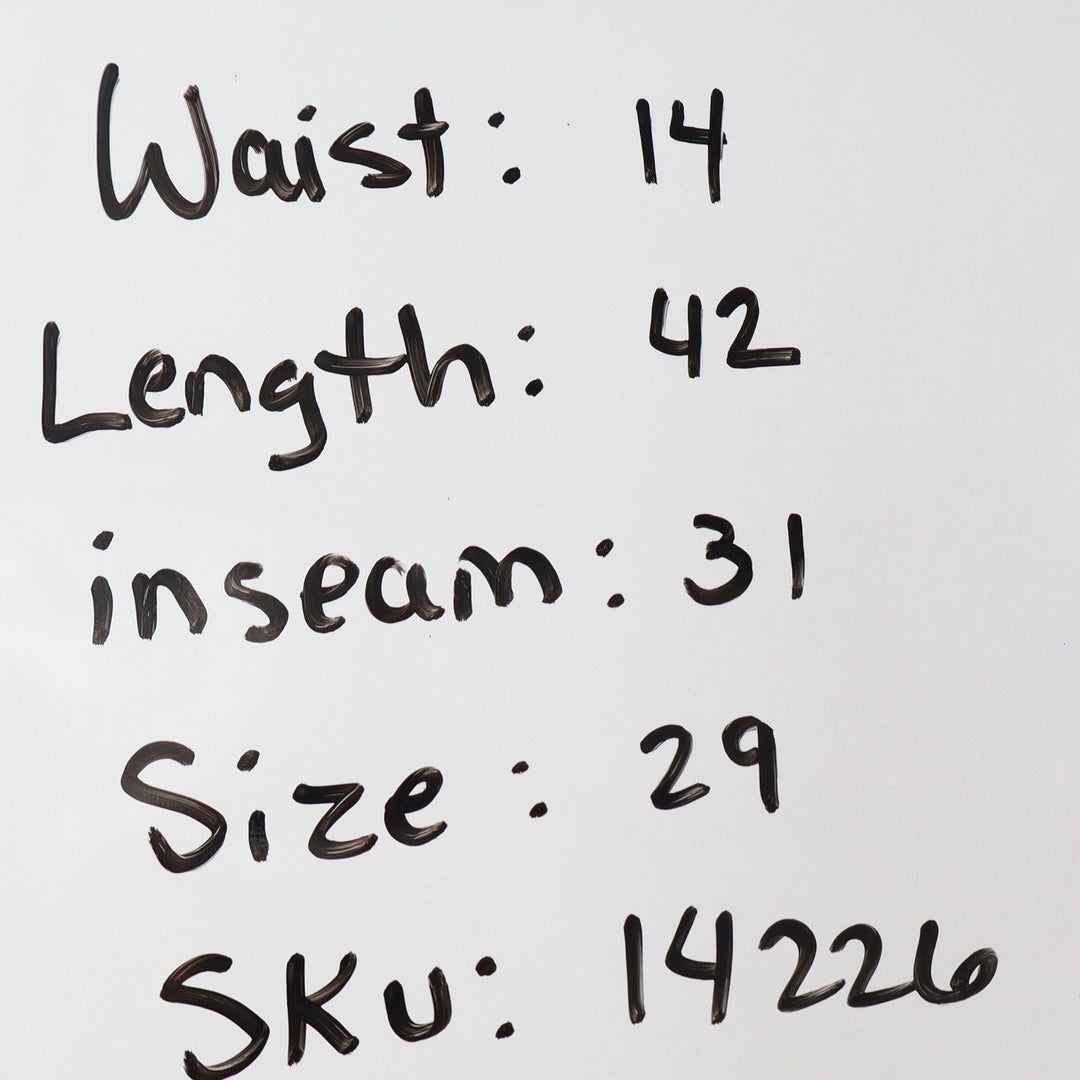 Waist: 14
Length: 42
inseam: 31
Size: 29
SKU: 14226